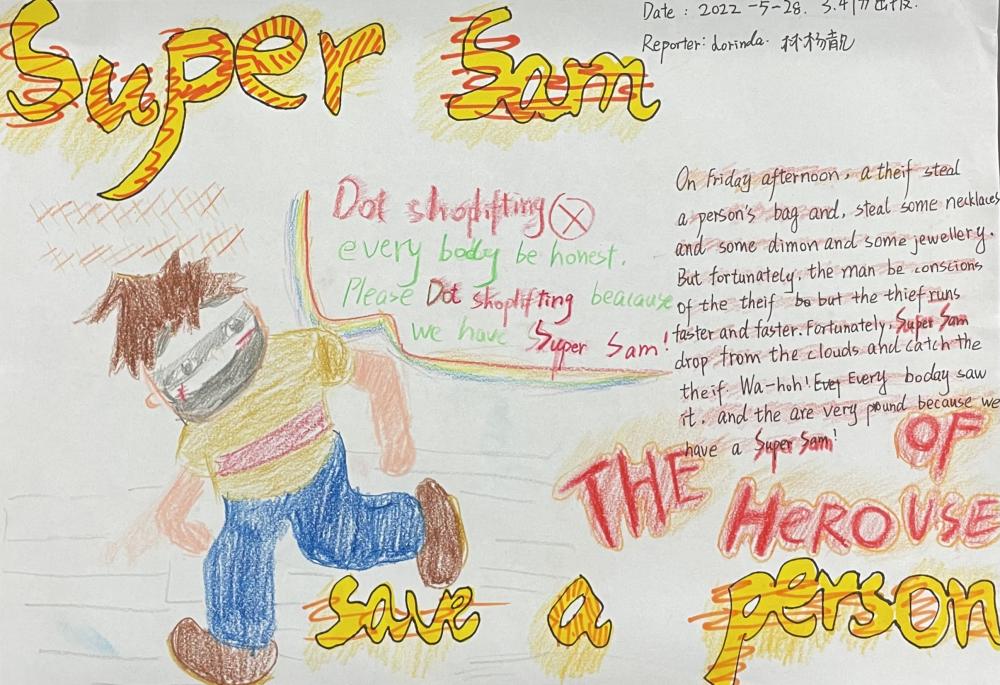 Super Sam
Date : 2022 -5-28.
Reporter: dorinda. 林杨靓
Dot shoplifting
every body be honest.
Please Dot shoplifting beacause
we have Super Sam!
On friday afternoon, a theif steal
a person's bag and, steal some necklaces
and some dimon and some jewellery.
But fortunately, the man be conscions
of the theif be but the thief runs
faster and faster. Fortunately, Super Sam
drop from the clouds and catch the
theif. Wa-hoh! Evey Every boday saw
it. and the are very pround because we
have a Super Sam!
THE HEROUSE OF
save a person